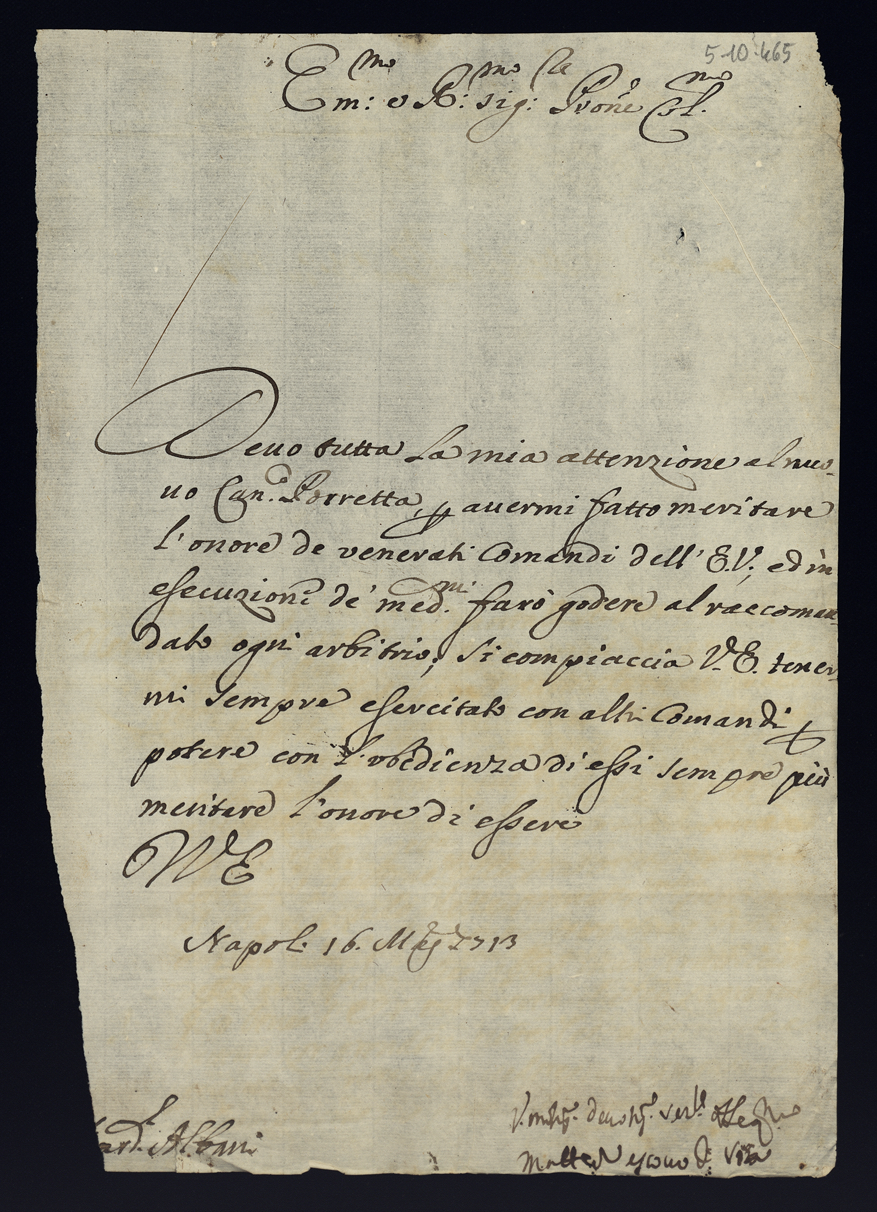 5-10-465
Em:mo e R:mo sig: Pvone Col.mo
Deuo tutta la mia attenzione al nuo-
uo Can.o Porretta, p auermi fatto meritare
l'onore de venerati Comandi dell' E.V., ed in
esecuzione de' med.mi farò godere al raccoman-
dato ogni arbitrio; si compiaccia V.E. tener-
mi sempre esercitato con altri Comandi p
potere con l'obedienza di essi sempre più
meritare l'onore di essere
VE
Napol. 16. Mag 1713
ard.l Albani